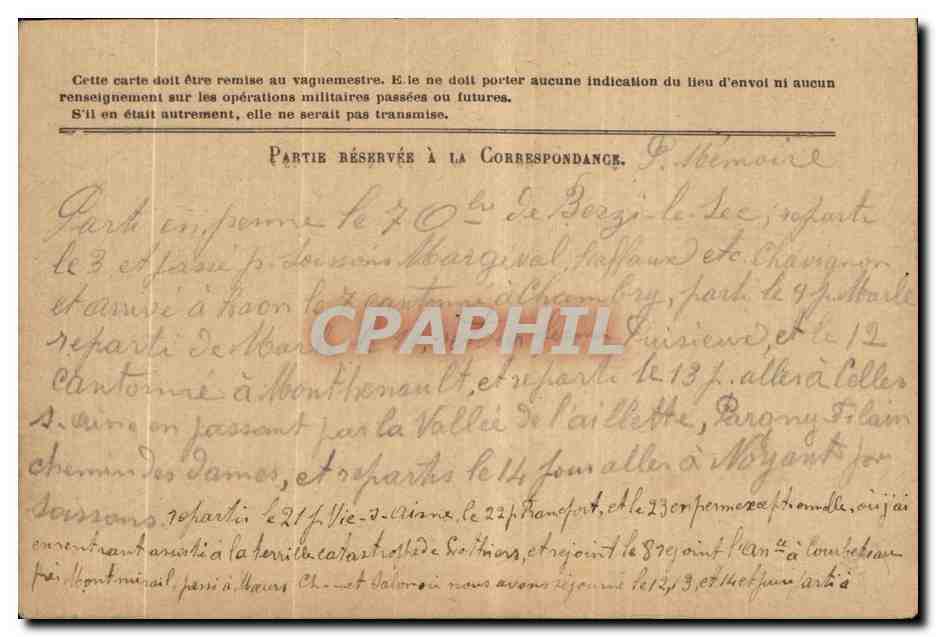 Cette carte doit être remise au vaguemestre. E le ne doit porter aucune indication du lieu d'envoi ni aucun
renseignement sur les opérations militaires passées ou futures.
S'il en était autrement, elle ne serait pas transmise.
PARTIE RÉSERVÉE À LA CORRESPONDANCE. P. Mémoire
Parti en perme le 7 Obre de Berzi-le-Sec, reparti
le 3 et passé p. Soissons Margival, Laffaux etc. Chavignon
et arrivé à Laon le 7 cantonné à Chambry, parti le 9 p. Marle
reparti de Puisieux, et le 12
CPAPHIL
cantonné à Monthenault, et reparti le 13 p. aller à Celles
s. aisne en passant par la Vallée de l'ailette, Pargny Filain
chemin des dames, et repartis le 14 pour aller à Noyant par
Soissons, repartir le 21 p. Vic-s-Aisne, le 22 p. transport, et le 23 en perm exceptionnelle, où j'ai
en rentrant assisté à la terrible catastrophe de et rejoint le 8 rejoint l'an à Courbeteau
près Montmirail, passé à Mœurs où nous avons séjourné le 12, 13, et 14 et puis parti à